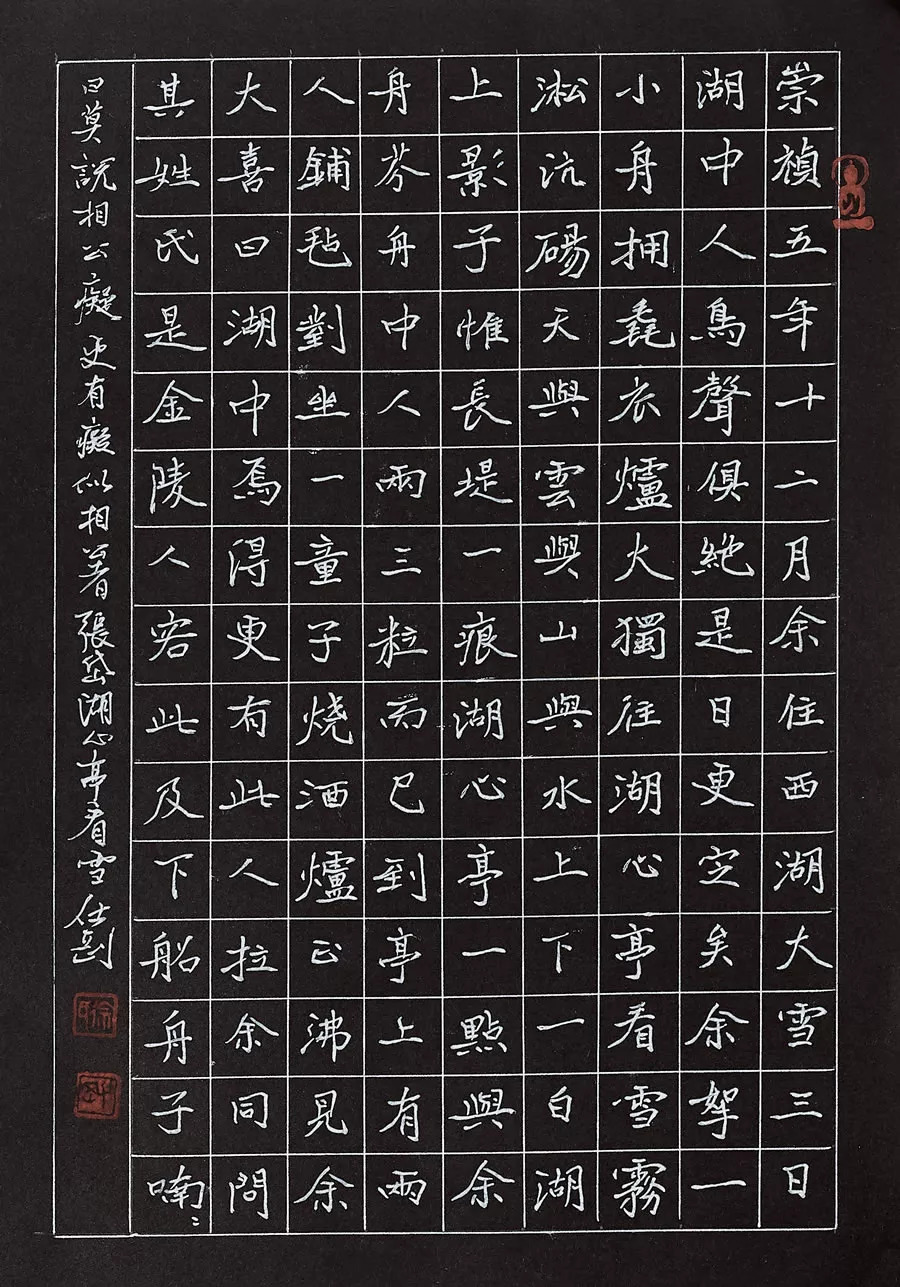 崇禎五年十二月余住西湖大雪三日
湖中人鳥聲俱絶是日更定矣余挐一
小舟拥毳衣爐火獨往湖心亭看雪霧
淞沆碭天與雲與山與水上下一白湖
上影子惟長堤一痕湖心亭一點與余
舟芥舟中人兩三粒而已到亭上有兩
人鋪毡對坐一童子烧酒爐正沸見余
大喜曰湖中焉得更有此人拉余同問
其姓氏是金陵人客此及下船舟子喃〻
曰莫説相公癡更有癡似相者張岱湖心亭看雪